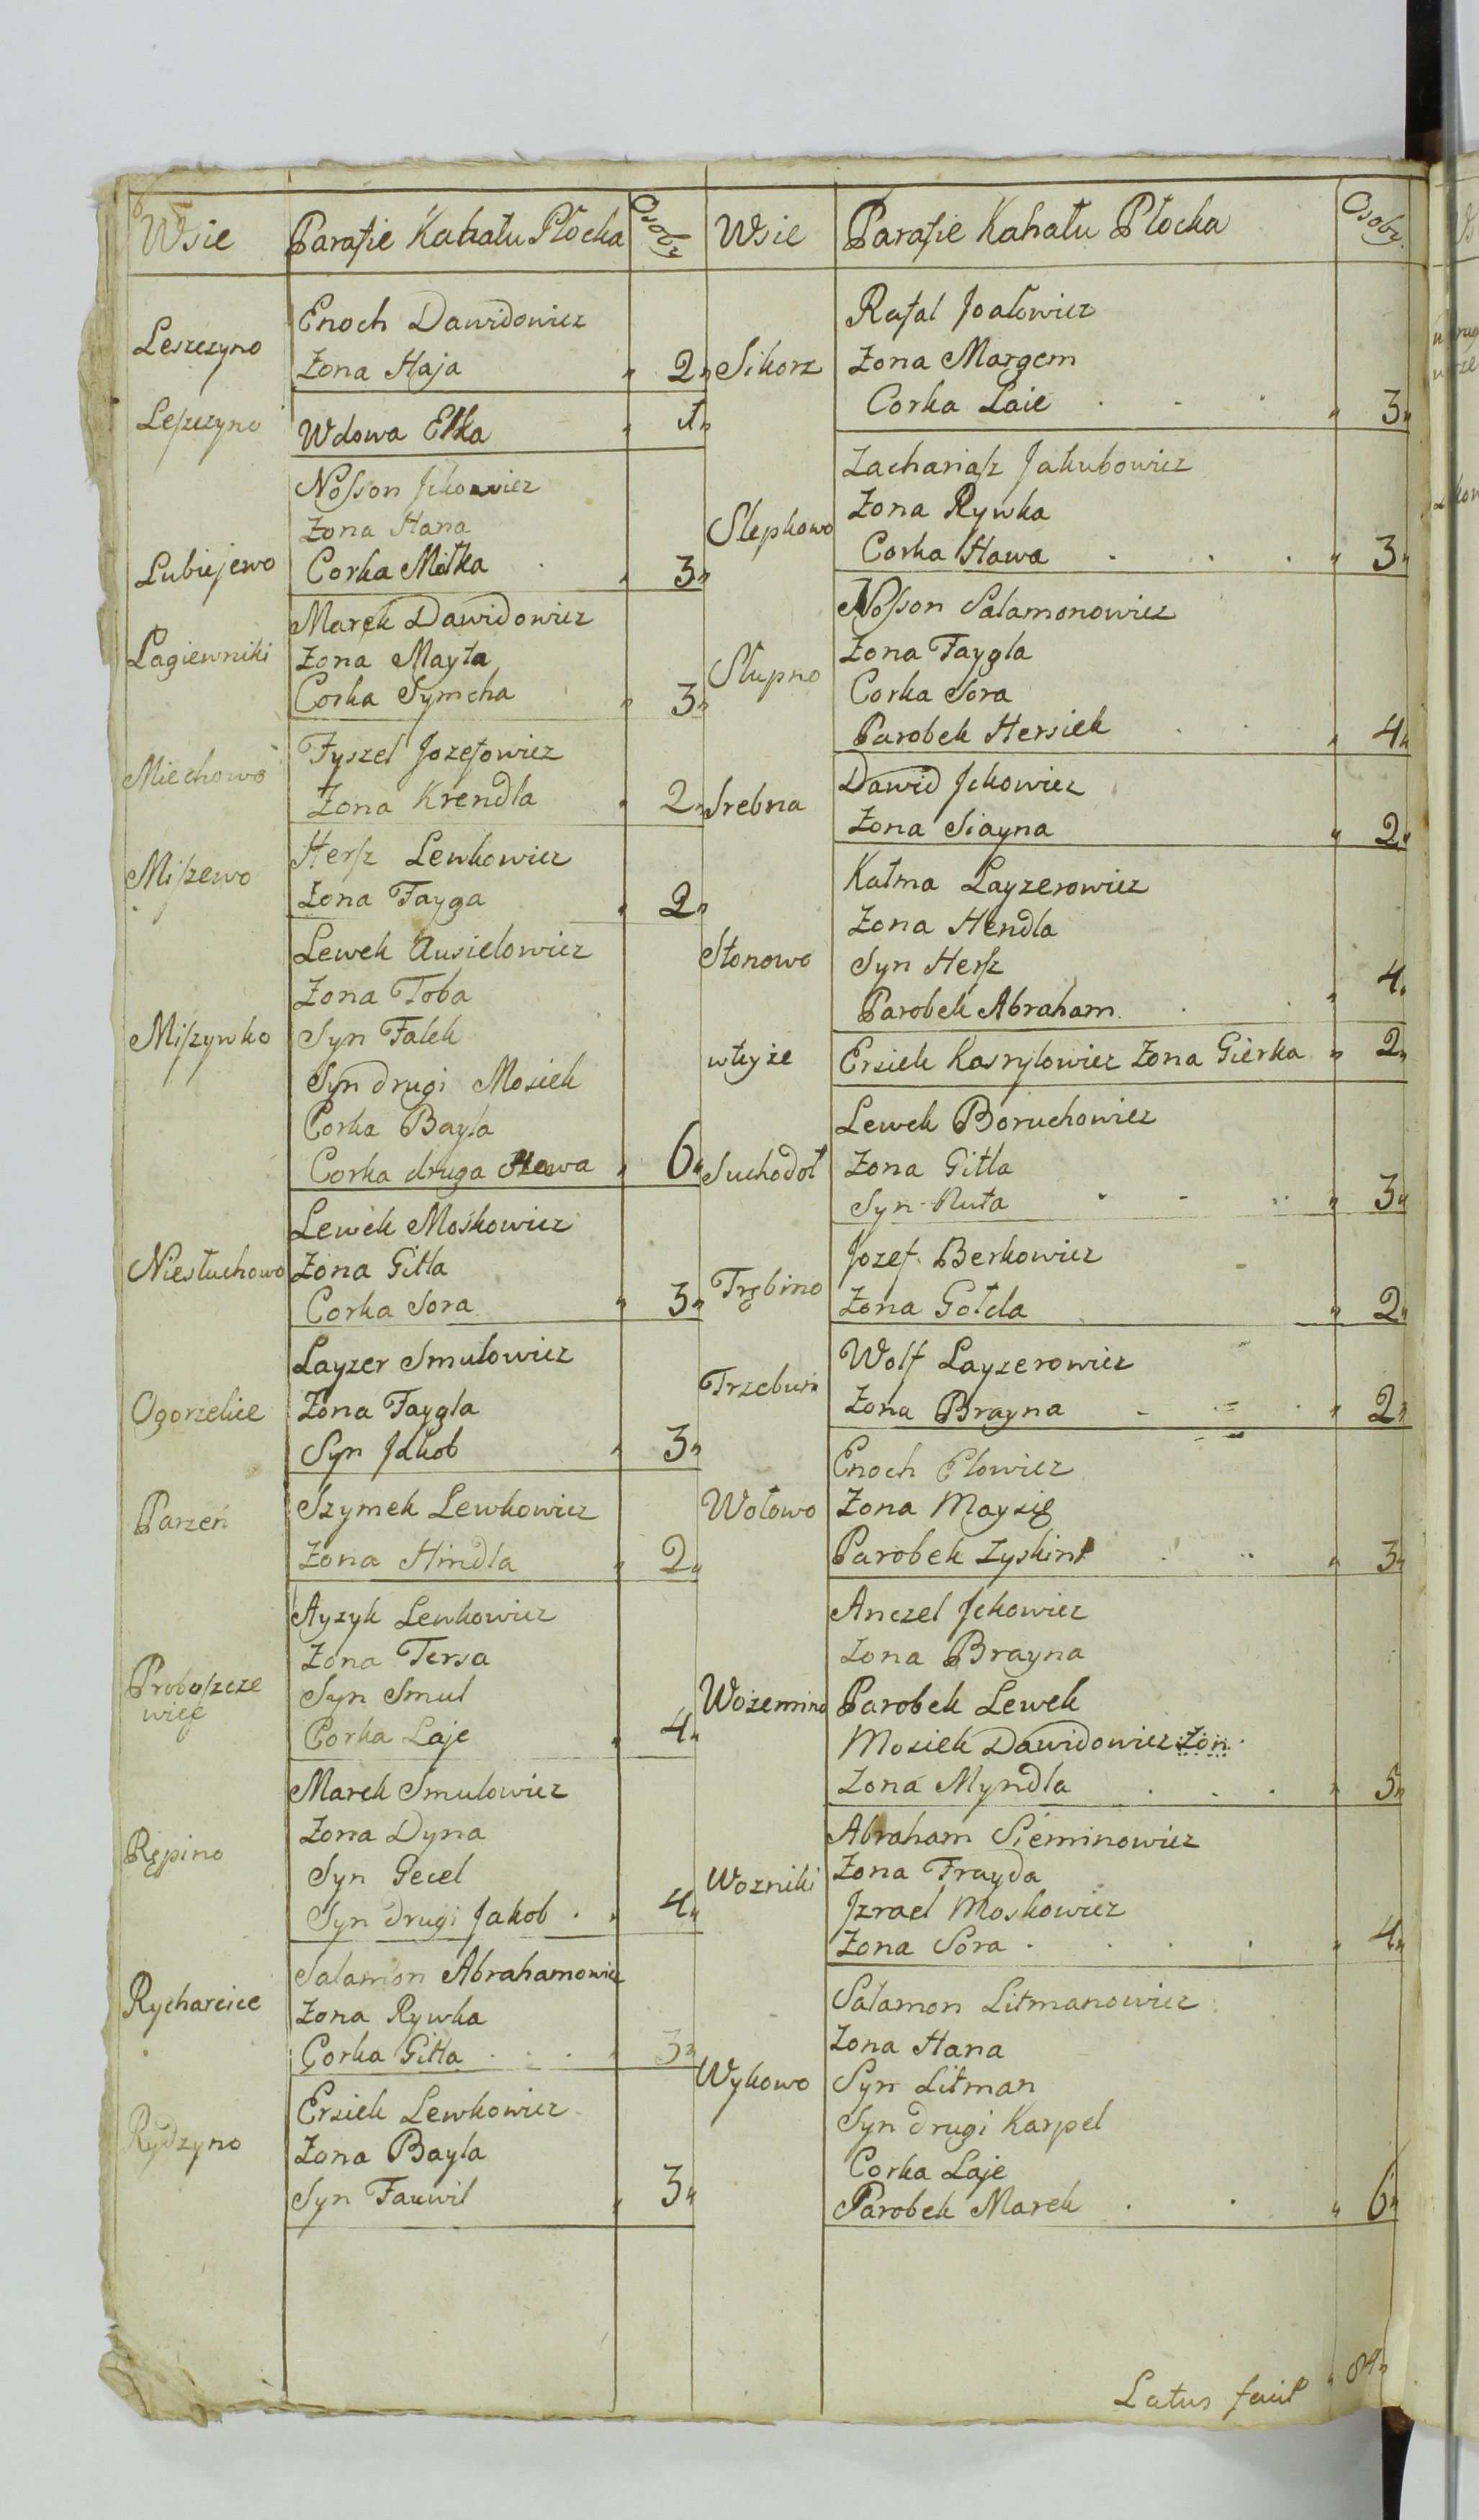 Wsie Parafie Kahału Płocka Osoby
Leszczyno
Enoch Dawidowicz
Zona Haja „ 2„
Lepszyno
Wdowa Elka „ 1„
Lubiejewo
Nosson Jckowicz
Zona Hana
Corka Mitka „ 3„
Łagiewniki
Marek Dawidowicz
Zona Mayta
Corka Symcha „ 3„
Miechowo
Fyszel Jozefowicz
Zona Krendla „ 2„
Miszewo
Hersz Lewkowicz
Zona Fayga „ 2„
Miszywko
Lewek Ausielowicz
Zona Toba
Syn Falek
Syn drugi Mosiek
Corka Bayla
Corka druga Hawa „ 6„
Niesłuchowo
Lewek Moskowicz
Zona Gitla
Corka Sora „ 3„
Ogorzelice
Layzer Smulowicz
Zona Faygla
Syn Jakob „ 3„
Parzeń
Szymek Lewkowicz
Zona Hindla „ 2„
Proboszcze
wice
Ayzyk Lewkowicz
Zona Tersa
Syn Smul
Corka Laje „ 4„
Rępino
Marek Smulowicz
Zona Dyna
Syn Gecel
Syn drugi Jakob . „ 4„
Rycharcice
Salamon Abrahamowicz
Zona Rywka
Corka Gitla . . . „ 3„
Rydzyno
Ersiek Lewkowicz
Zona Bayla
Syn Fauwil „ 3„
Wsie Parafie Kahału Płocka Osoby.
Sikorz
Rafal Joalowicz
Zona Margem
Corka Laie . . . „ 3„
Slepkowo
Zachariasz Jakubowicz
Zona Rywka
Corka Hawa . . . „ 3„
Słupno
Nosson Salamonowicz
Zona Faygla
Corka Sora
Parobek Hersiek . . „ 4„
Srebna
Dawid Jckowicz
Zona Siayna „ 2„
Słonowo
Kałma Layzerowicz
Zona Hendla
Syn Hersz
Parobek Abraham . . „ 4„
wtyże Ersiek Kasrylowicz Zona Gierka „ 2„
Suchodoł
Lewek Boruchowicz
Zona Gitla
Syn Ruta „ 3„
Trębino
Jozef Berkowicz
Zona Gołda „ 2„
Trzebuń
Wolf Layzerowicz
Zona Brayna „ 2„
Wołowo
Enoch Elowicz
Zona Maysię
Parobek Zyskint „ 3„
Wożemino
Anczel Jckowicz
Zona Brayna
Parobek Lewek
Mosiek Dawidowicz Zon
Zona Myndla . . . „ 5„
Wozniki
Abraham Sieminowicz
Zona Frayda
Jzrael Moskowicz
Zona Sora . . . . „ 4„
Wykowo
Salamon Litmanowicz
Zona Hana
Syn Litman
Syn drugi Karpel
Corka Laje
Parobek Marek . . „ 6„
Latus facit „ 84„